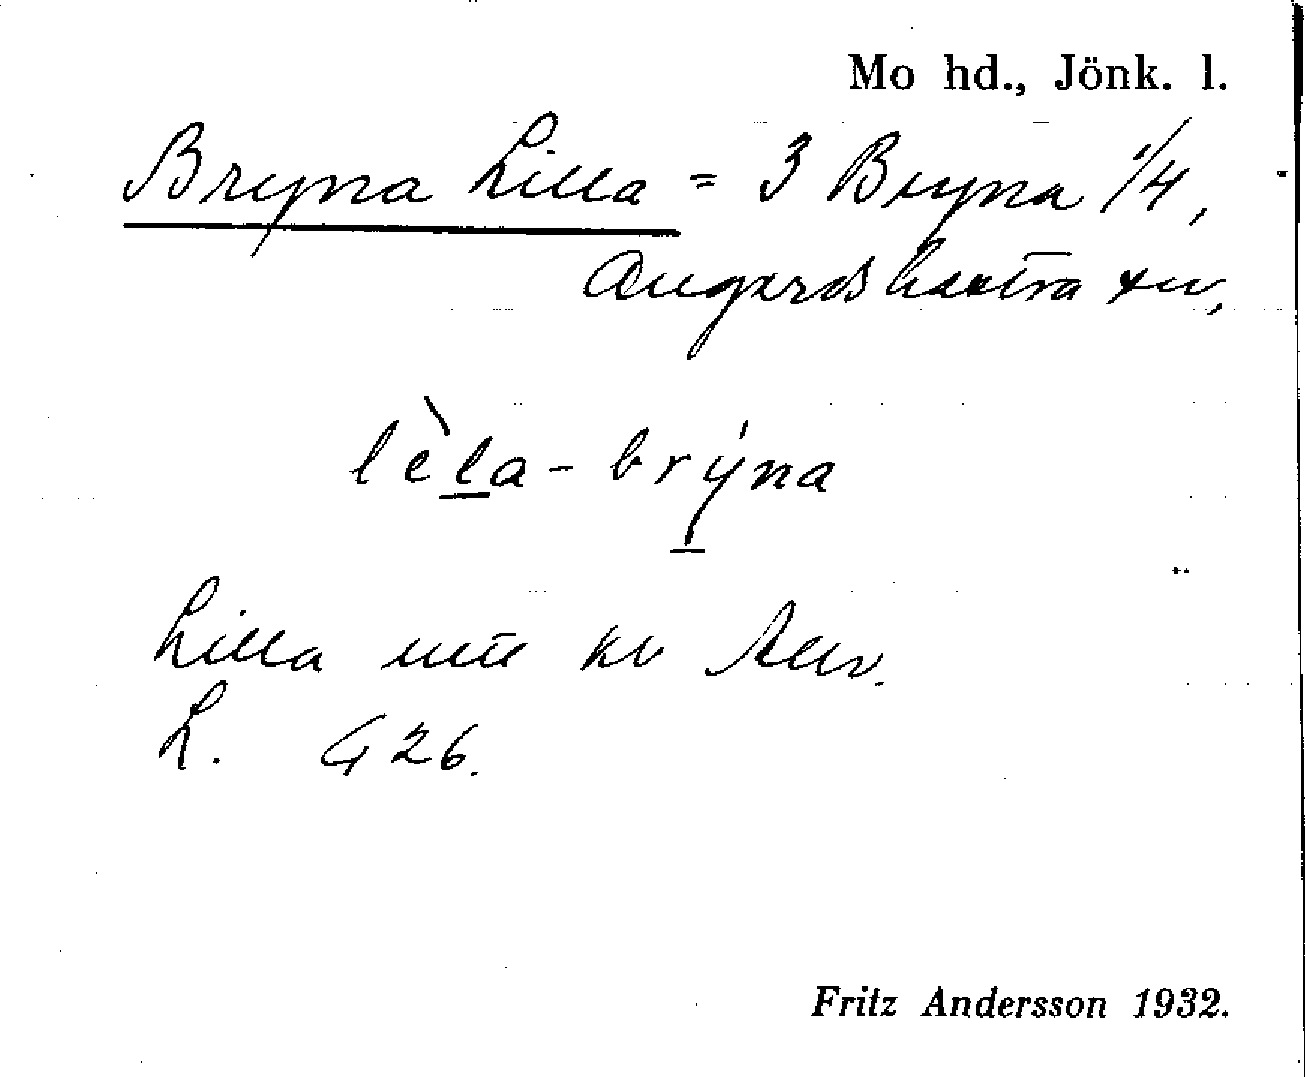 Mo hd., Jönk. l.
Bryna Lilla = 3 Bryna 1/4,
Ångerdshestra sn,
lèla-brýna
Lilla utt
L. 426.
Fritz Andersson 1932.